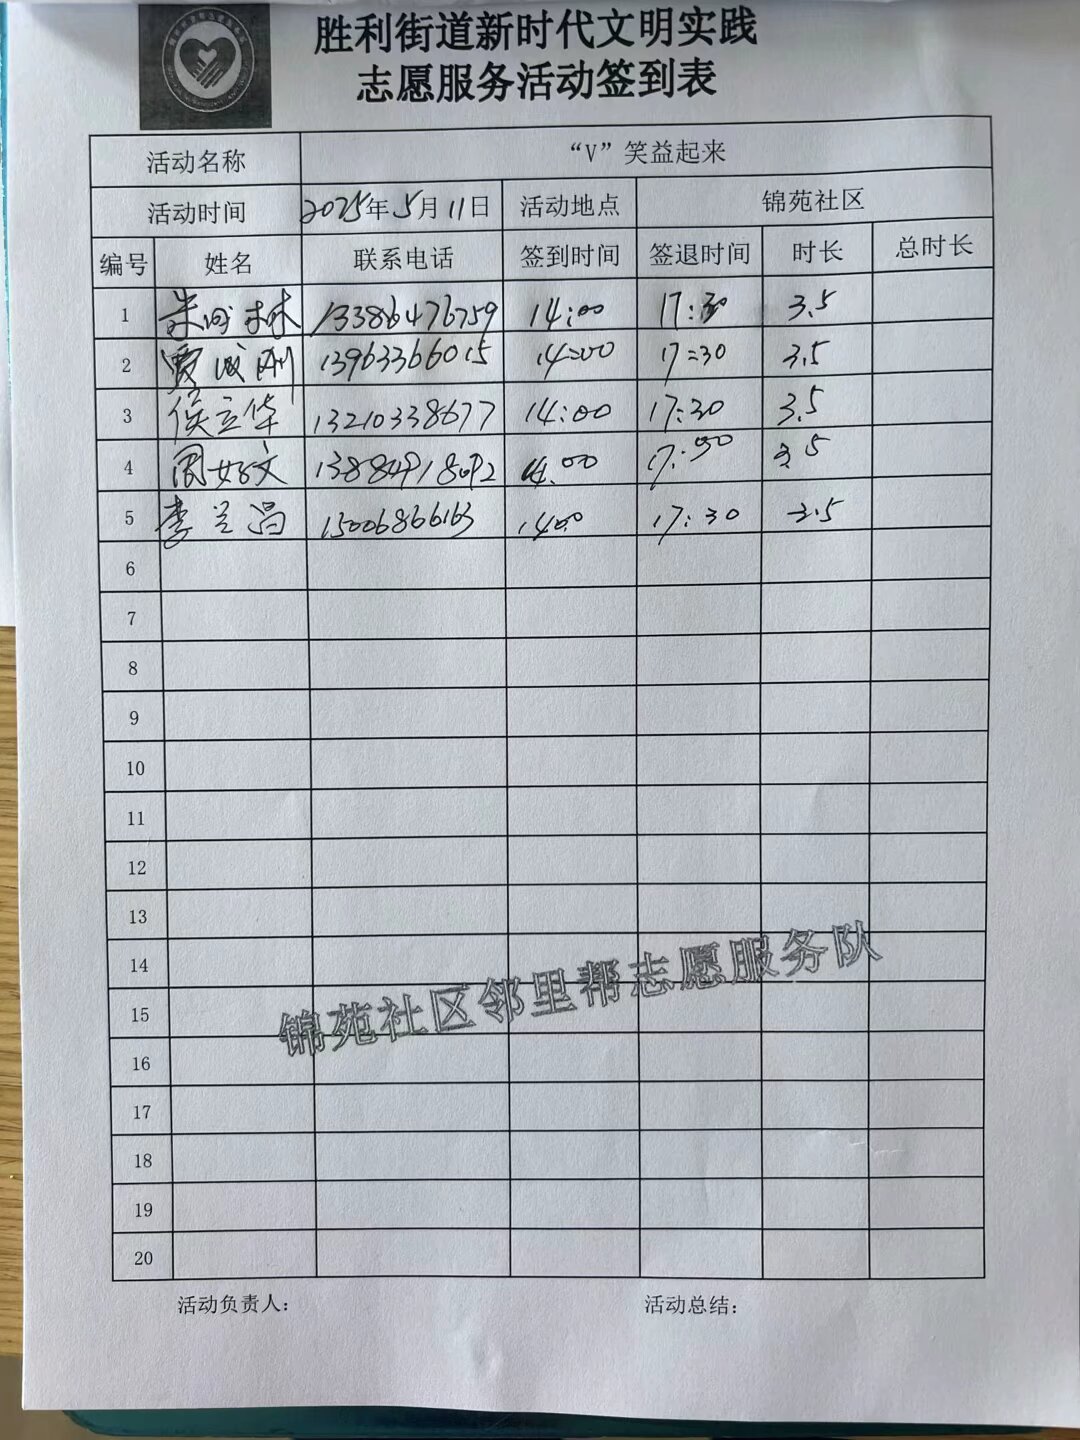 胜利街道新时代文明实践
志愿服务活动签到表
活动名称 “V”笑益起来
活动时间 2025年5月11日 活动地点 锦苑社区
编号 姓名 联系电话 签到时间 签退时间 时长 总时长
1 13386476759 14:00 17:30 3.5
2 13963366015 14:00 17:30 3.5
3 侯立华 13210338677 14:00 17:30 3.5
4 周好文 14:00 17:30 3.5
5 李兰昌 15006866163 14:00 17:30 3.5
6
7
8
9
10
11
12
13
14
锦苑社区邻里帮志愿服务队
15
16
17
18
19
20
活动负责人： 活动总结：